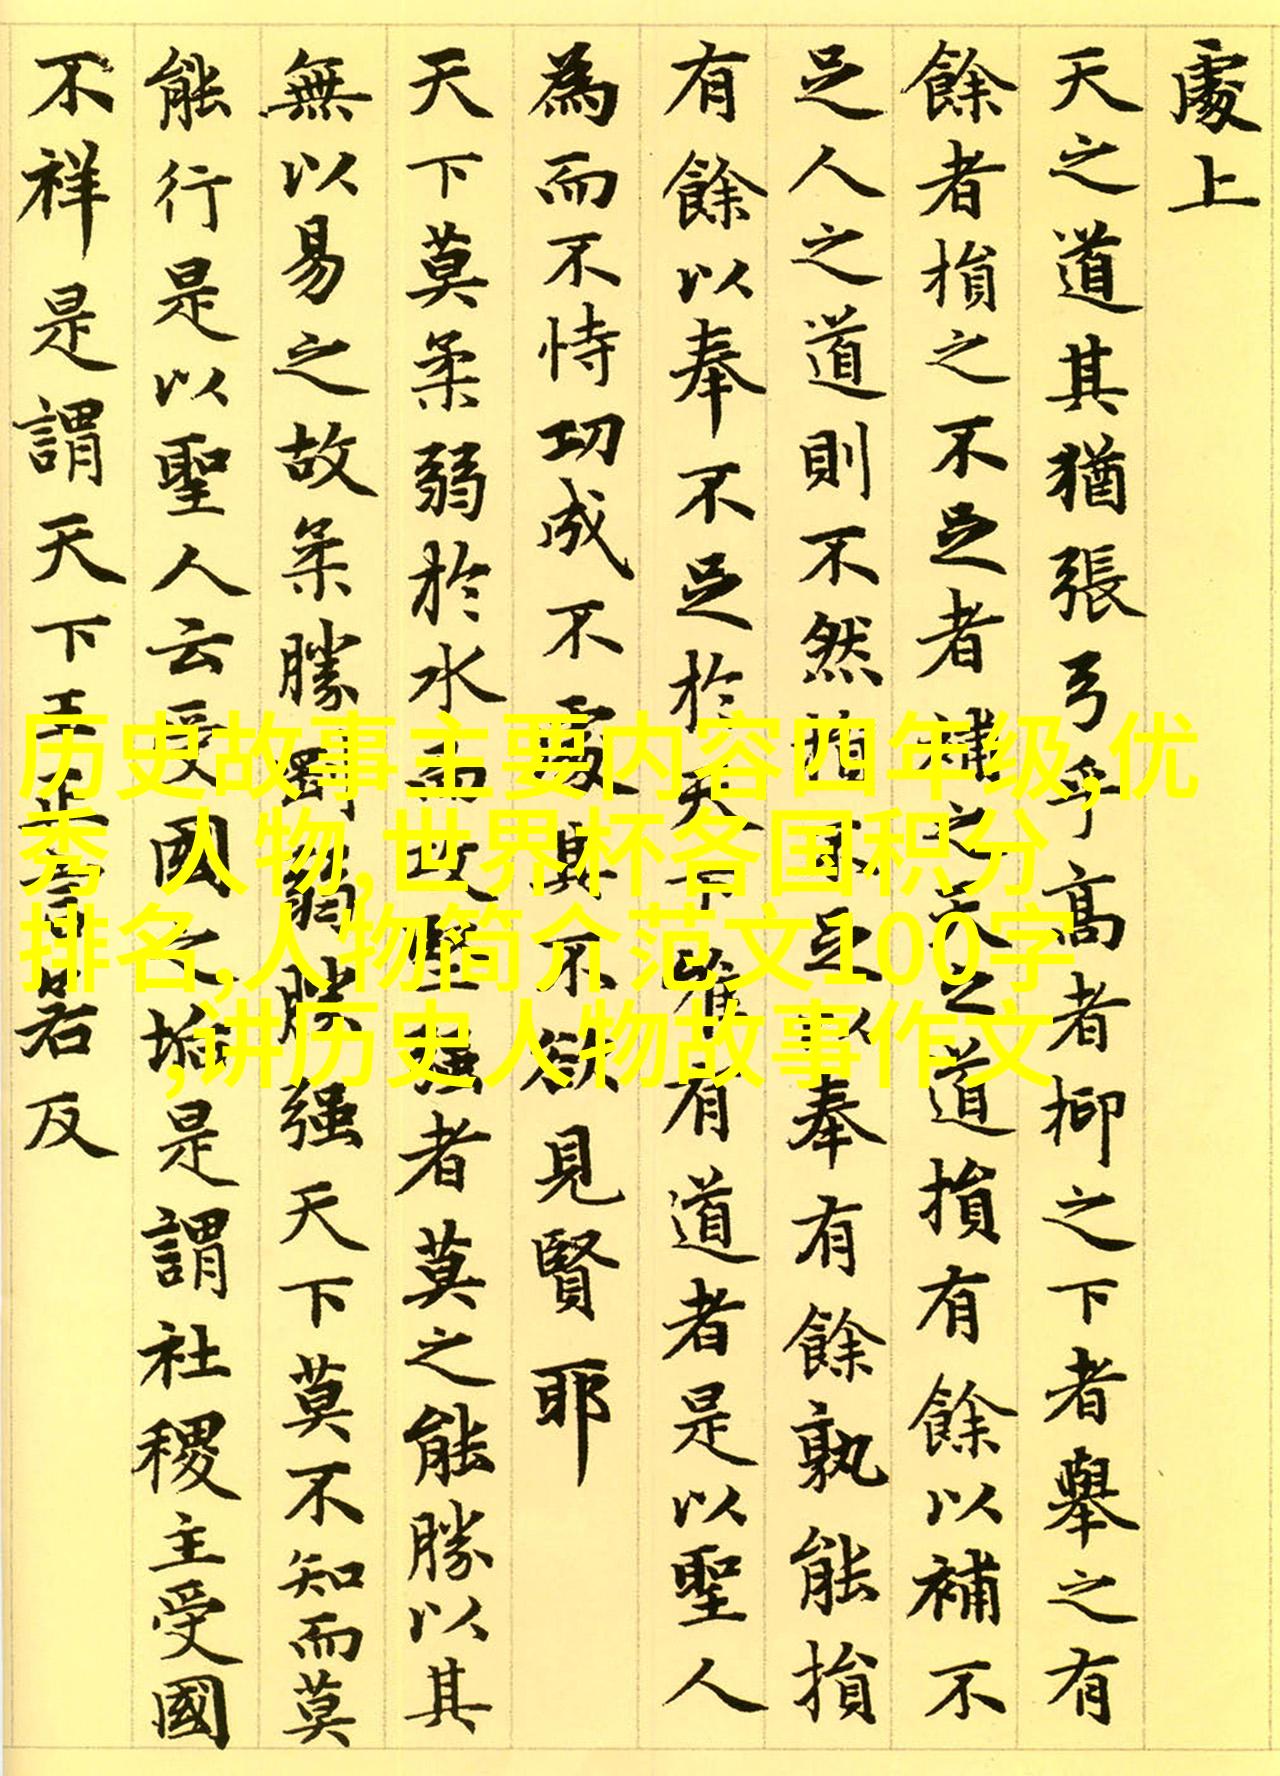 處上
天之道其猶張弓乎高者抑之下者舉之有
餘者損之不足者補之天之道損有餘以補不
足人之道則不然損不足以奉有餘孰能損
有餘以奉不足於天下唯有道者是以聖人
為而不恃功成不處其不欲見賢耶
天下莫柔弱於水而攻堅强者莫之能勝以其
無以易之故柔勝剛弱勝强天下莫不知而莫
能行是以聖人云受國之垢是謂社稷主受國
不祥是謂天下王正言若反
历史故事主要内容四年级,优
秀 人物,世界杯各国积分
排名,人物简介范文100字
,讲历史人物故事作文